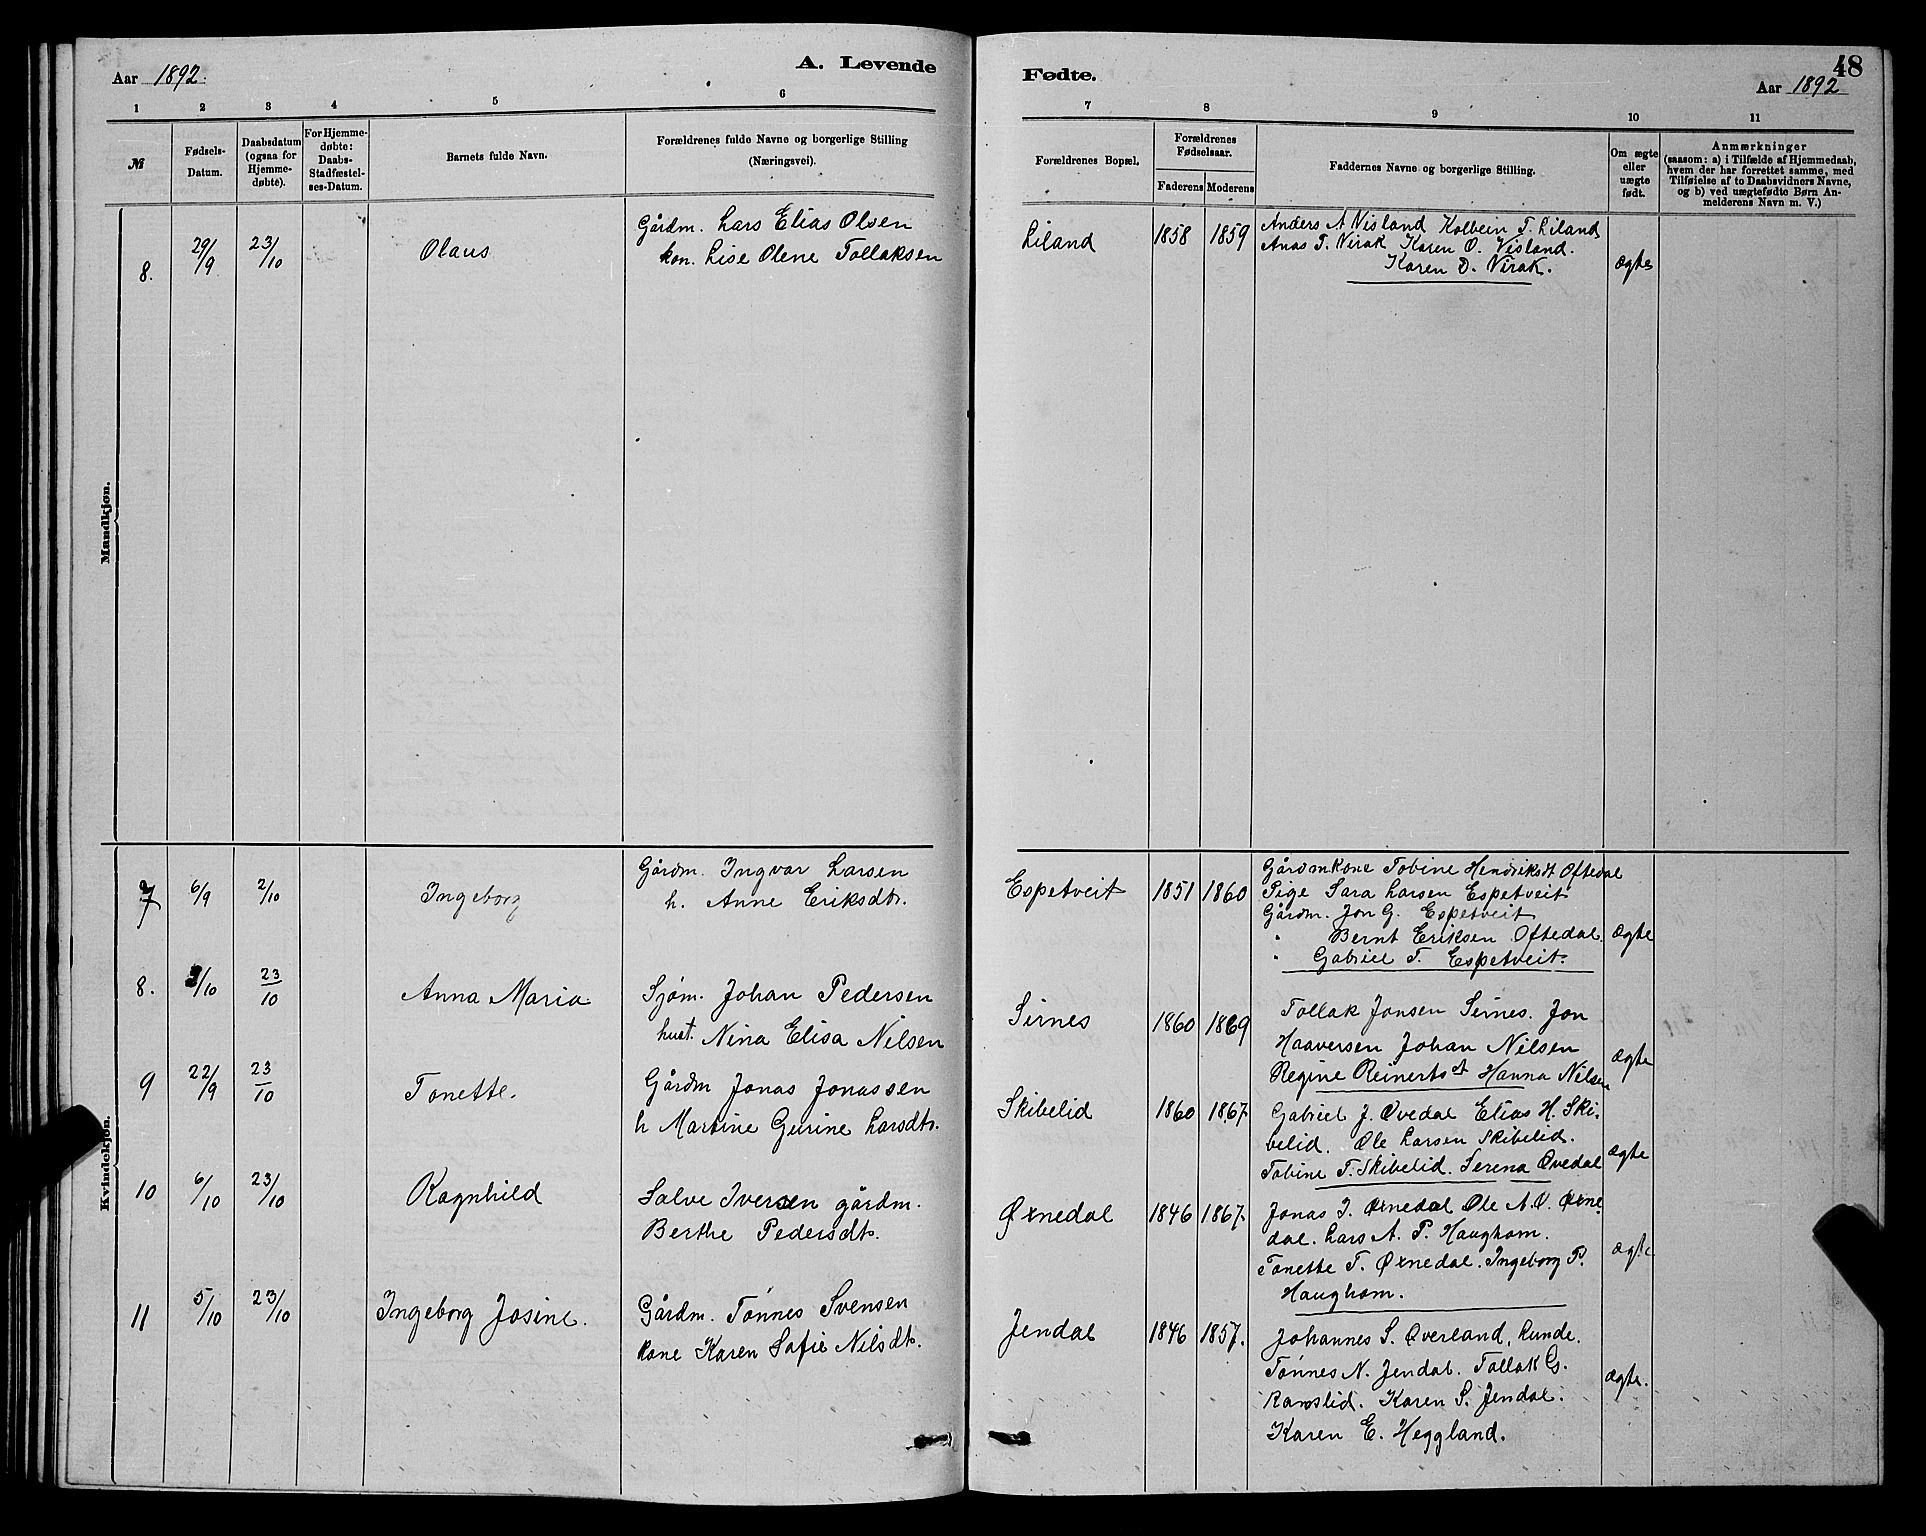 Aar 1892.
A. Levende
Fødte.
48
Aar 1892
1 2 3 4 5 6 7 8 9 10 11
№
Fødsels-
Datum.
Daabsdatum
(ogsaa for
Hjemme-
døbte).
For Hjemme-
døbte:
Daabs-
Stadfæstel-
ses-Datum.
Barnets fulde Navn.
Forældrenes fulde Navne og borgerlige Stilling
(Næringsvei).
Forældrenes Bopæl.
Forældrenes
Fødselsaar.
Faderens Moderens
Faddernes Navne og borgerlige Stilling.
Om ægte
eller
uægte
født.
Anmærkninger
(saasom: a) i Tilfælde af Hjemmedaab,
hvem der har forrettet samme, med
Tilføielse af to Daabsvidners Navne,
og b) ved uægtefødte Børn An-
melderens Navn m. V.)
Mandkjøn.
8. 29/9 23/10 Olaus
Gårdm. Lars Elias Olsen
kon. Lise Olene Tollaksen
Liland 1858 1859
Anders A Visland Kolbein T. Liland
Anas T. Nirak Karen O. Visland.
Karen D. Nirak.
ægte
Kvindekjøn.
7 6/9 2/10 Ingeborg
Gårdm. Ingvar Larsen
h. Anne Eriksdtr.
Espetveit 1851 1860
Gårdmkone Tobine Hendriksdt Oftedal
Pige Sara Larsen Espetveit
Gårdm. Jon G. Espetveit
" Bernt Eriksen Oftedal.
" Gabriel T. Espetveit.
ægte
8. 3/10 23/10 Anna Maria
Sjøm. Johan Pedersen
hust. Nina Elisa Nilsen
Sirnes 1860 1869
Tollak Jonsen Sirnes. Jon
Haaversen Johan Nilsen
Regine Reinertsdt Hanna Nilsen
ægte
9 22/9 23/10 Tonette.
Gårdm Jonas Jonassen
h Martine Gurine Larsdtr.
Skibelid 1860 1867.
Gabriel J. Øvedal Elias H. Ski-
belid. Ole Larsen Skibelid.
Tobine T. Skibelid. Serena Øvedal
ægte
10 6/10 23/10 Ragnhild
Salve Iversen gårdm.
Berthe Pedersdtr.
Øxnedal 1846 1867.
Jonas I. Øxnedal Ole A. V. Øxne-
dal. Lars A. P. Haughom.
Tonette T. Øxnedal. Ingeborg P.
Haughom.
ægte
11 5/10 23/10 Ingeborg Josine.
Gårdm. Tønnes Svensen
kone Karen Sofie Nilsdtr.
Jendal 1846 1857.
Johannes S. Overland, Lunde.
Tønnes N. Jendal. Tollak G.
Ramslid. Karen S. Jendal.
Karen E. Heggland.
ægte.